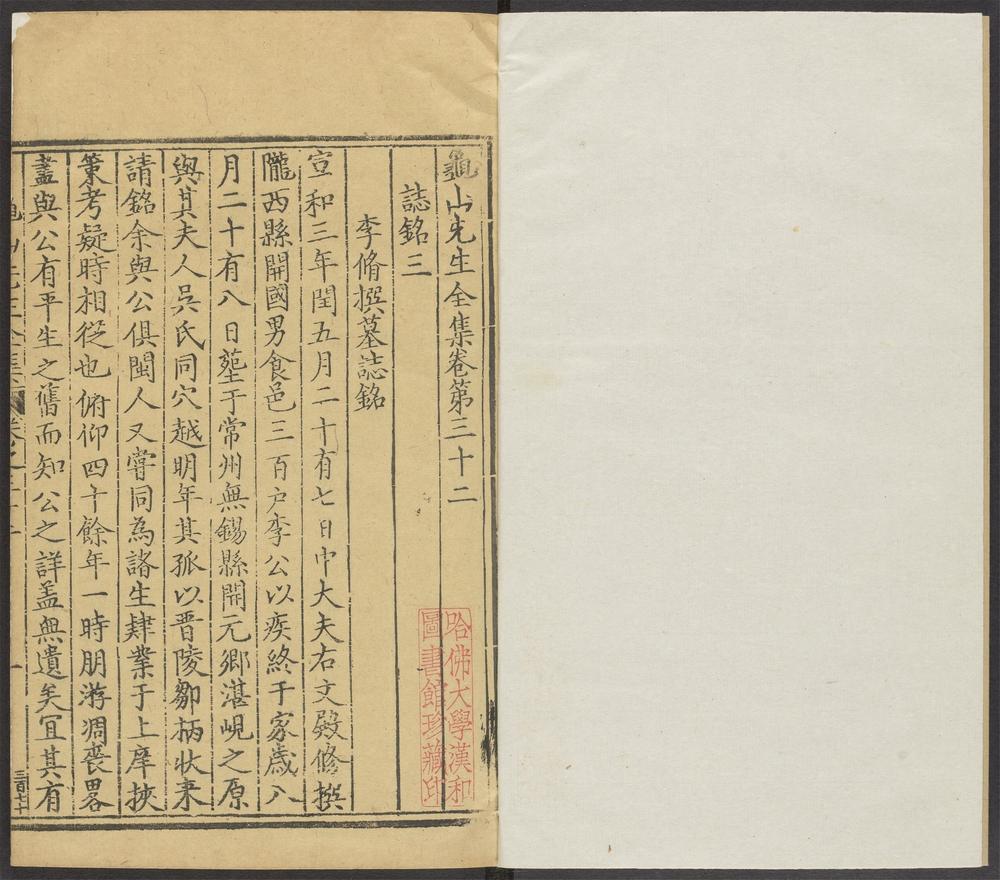 龜山先生全集卷第三十二
誌銘三
李脩撰墓誌銘
宣和三年閏五月二十有七日中大夫右文殿修撰
隴西縣開國男食邑三百户李公以疾終于家歲八
月二十有八日塟于常州無錫縣開元鄉湛峴之原
與其夫人吳氏同穴越明年其孤以晋陵鄒柄狀来
請銘余與公俱閩人又嘗同為諸生肄業于上庠挾
策考疑時相從也俯仰四十餘年一時朋游凋喪畧
盡與公有平生之舊而知公之詳盖無遺矣宜其有
哈佛大學漢和
圖書館珍藏印